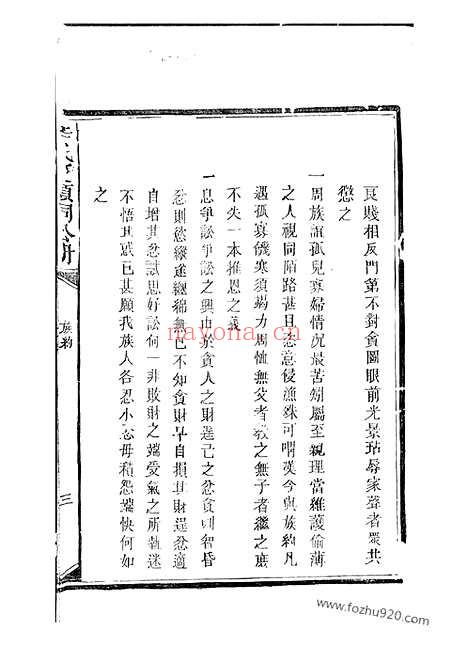 良賤相反門第不對貪圖眼前光景玷辱家聲者眾共
懲之
一周族誼孤兒寡婦情況最苦矧屬至親理當維護偷薄
之人視同陌路甚且恣意侵漁殊可喟嘆今與族約凡
遇孤寡饑寒須葯力周恤無父者教之無子者繼之庶
不失一本推恩之義
一息爭訟爭訟之興由於貪人之財逞己之忿貪則智昏
忿則慾縱逾纏綿無已不知貪財早自損其財逞忿適
自增其忿試思好訟何一非敗財之端受氣之所執迷
不悟其惑已甚願我族人各忍小忿毋積怨端快何如
之
族約
三
nayona.cn
www.fozhu920.com